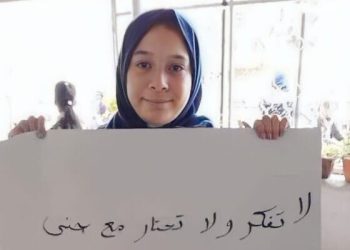 لا تفكر ولا تحتار مع حنى